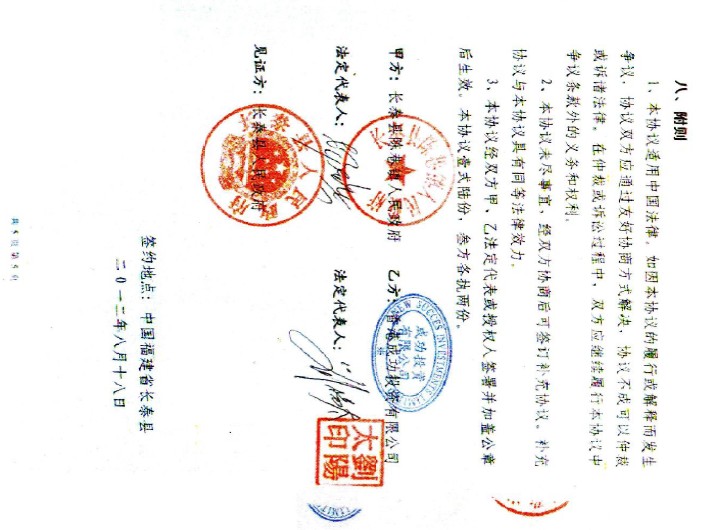 八、附则
1、本协议适用中国法律。如因本协议的履行或解释而发生
争议，协议双方应通过友好协商方式解决。协议不成可以仲裁
或诉诸法律。在仲裁或诉讼过程中，双方应继续履行本协议中
争议条款外的义务和权利。
2、本协议未尽事宜，经双方协商后可签订补充协议。补充
协议与本协议具有同等法律效力。
3、本协议经双方甲、乙法定代表或授权人签署并加盖公章
后生效。本协议壹式陆份，叁方各执两份。
甲方：长泰县陈巷镇人民政府 乙方：香港成功投资有限公司
法定代表人： 法定代表人：
见证方：长泰县人民政府
签约地点：中国福建省长泰县
二0一二年八月十八日
成功投資
有限公司
SUCCES INVESTMENTS
劉陽
太印